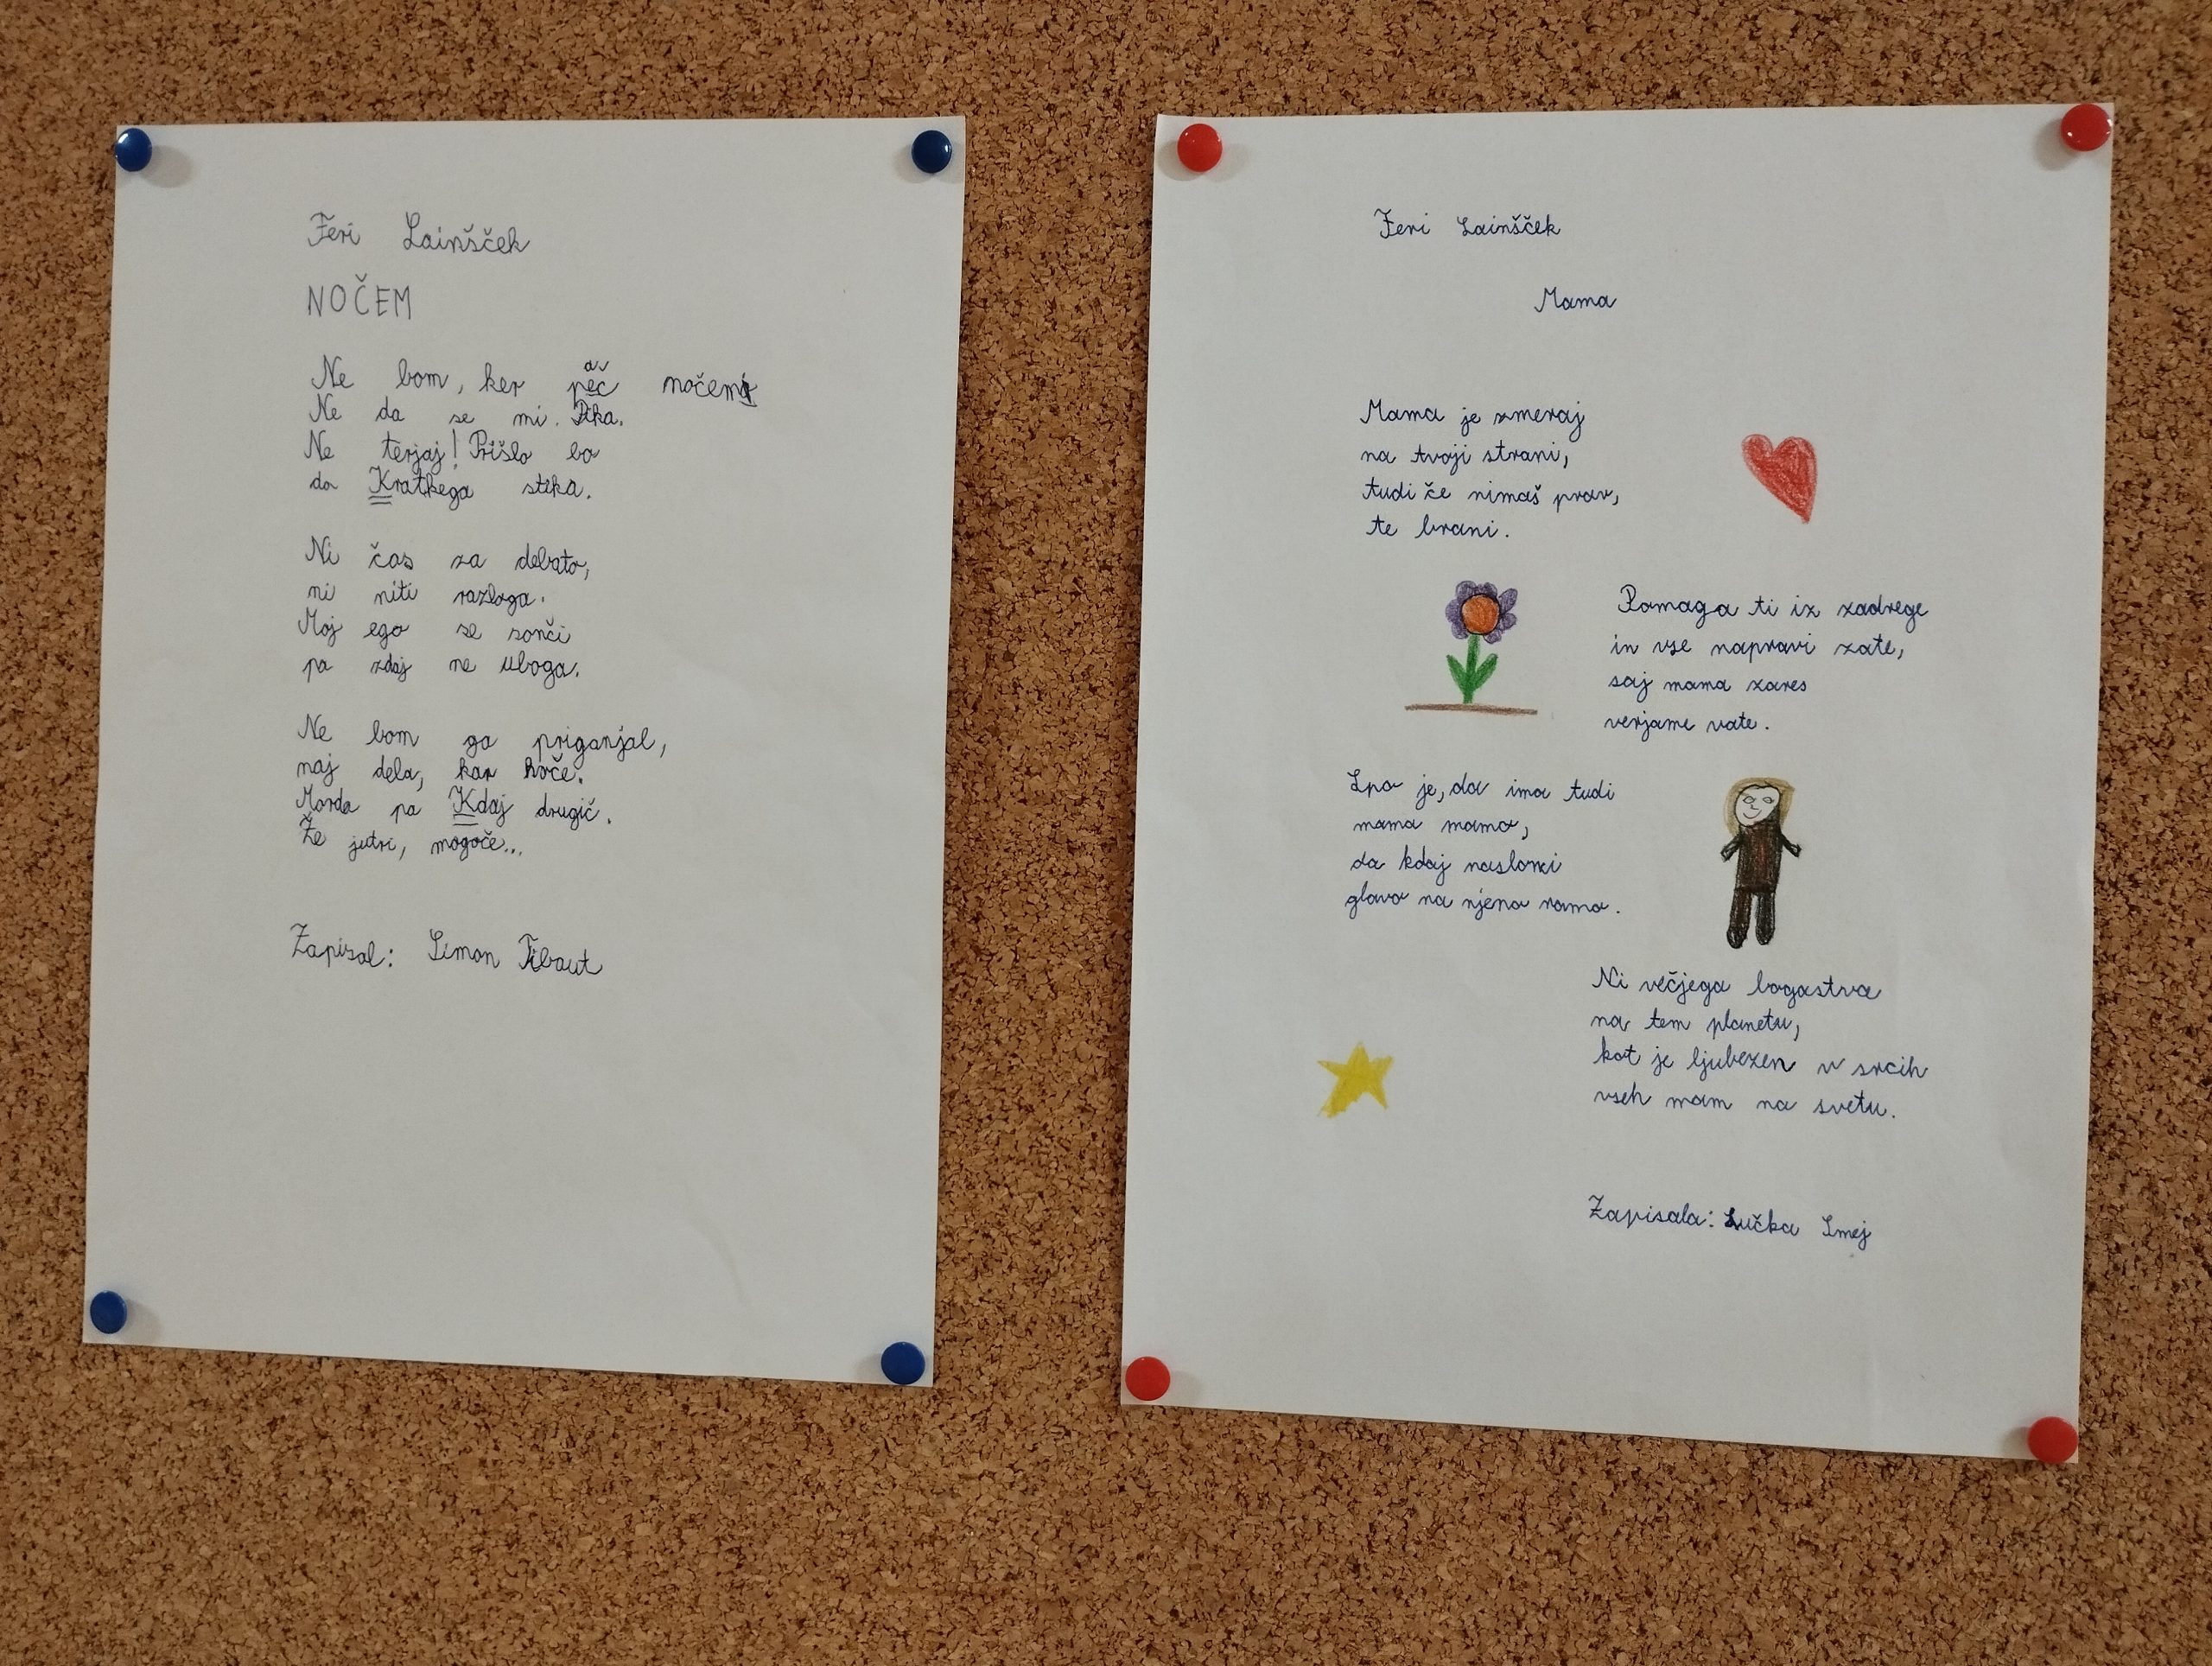 Feri Lainšček
NOČEM
Ne bom, ker pač nočem
Ne da se mi. Pika.
Ne terjaj! Prišlo bo
do Kratkega stika.
Ni čas za debato,
ni niti razloga.
Moj ego se sonči
pa zdaj ne uboga.
Ne bom ga priganjal,
naj dela, kar hoče.
Morda pa Kdaj drugič.
Že jutri, mogoče...
Zapisal: Simon Tibaut
Feri Lainšček
Mama
Mama je zmeraj
na tvoji strani,
tudi če nimaš prav,
te brani.
Pomaga ti iz zadrege
in vse napravi zate,
saj mama zares
verjame vate.
Lpo je, da ima tudi
mama mamo,
da kdaj nasloni
glavo na njeno ramo.
Ni večjega bogastva
na tem planetu,
kot je ljubezen v srcih
vseh mam na svetu.
Zapisala: Lučka Smej